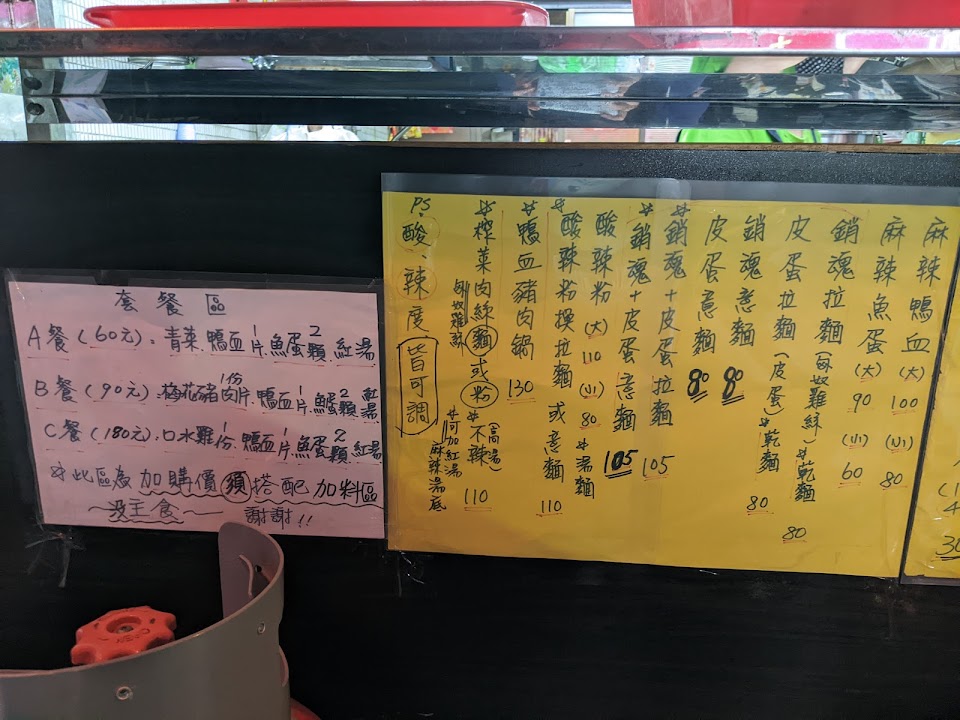 套餐區
A餐(60元)：青菜.鴨血1片.魚蛋2顆.紅湯
B餐(90元).梅花豬肉片1份.鴨血1片.魚蛋2顆.紅湯
C餐(180元).口水雞1份.鴨血1片.魚蛋2顆.紅湯
*此區為加購價須搭配加料區
~沒主食~ 謝謝!!
麻辣鴨血(大)100(小)80
麻辣魚蛋(大)90(小)60
銷魂拉麵(雞絲)*乾麵80
皮蛋拉麵(皮蛋)*乾麵80
銷魂意麵80
皮蛋意麵80
*銷魂+皮蛋拉麵105
*銷魂+皮蛋意麵105
酸辣粉(大)110(小)80*湯麵
*酸辣粉換拉麵或意麵110
*鴨血豬肉鍋130
*榨菜肉絲麵或粉*不辣(高湯)110
*可加紅湯麻辣湯底
PS.酸、辣度皆可調